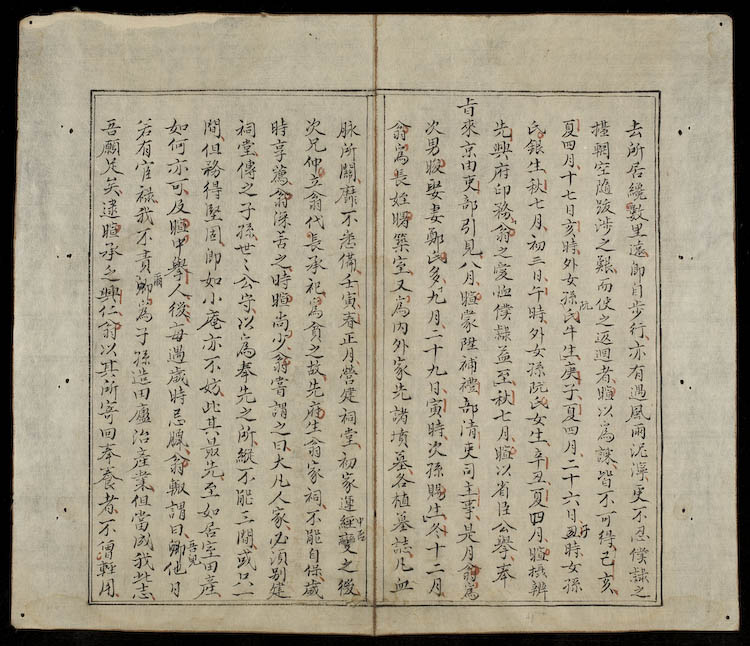 去所居纔數里遠即自步行亦有遇風雨泥濘更不忍僕隸之
攂輞空隨跋涉之艱而使之返迴者暄以爲諫皆不可得己亥
夏四月十七日亥時外女孫氏牛生庚子夏四月二十六日丑時女孫
氏銀生秋七月初三日午時外女孫阮氏女生辛丑夏四月暄攝辨
先興府印務翁之愛恤僕隸益至秋七月暄以省臣公舉奉
旨來京由吏部引見八月暄蒙陞補禮部清吏司主事是月翁爲
次男晙娶妻鄭氏多九月二十九日寅時次孫賜生冬十二月
翁爲長姪賜築室又爲內外家先諸墳墓各植墓誌凡血
脉所關靡不悉備壬寅春正月營建祠堂初家運經中否變之後
次兄仲立翁代長承祀爲貧之故先府生翁家祠不能自保歲
時享薦翁深苦之時暄尚少翁嘗謂之曰大凡人家必須別建
祠堂傳之子孫世〻公守以爲奉先之所縱不能三間或只一
間但務得堅固即如小庵亦不妨此其最先至如居室田產
如何亦可及暄中舉人後每遇歲時忌臘翁輒謂曰吾兒他日
若有官祿我不責爾爲子孫造田廬治產業但當成我此志
吾願足矣逮暄承乏興仁翁以其所寄回奉養者不曾輕用